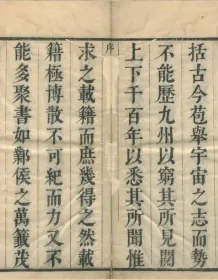 括古今苞舉宇宙之志而勢
不能歷九州以窮其所見閱
上下千百年以悉其所聞惟
序
求之載籍而庶幾得之然載
籍極博散不可紀而力又不
能多聚書如鄴侯之萬籤茂